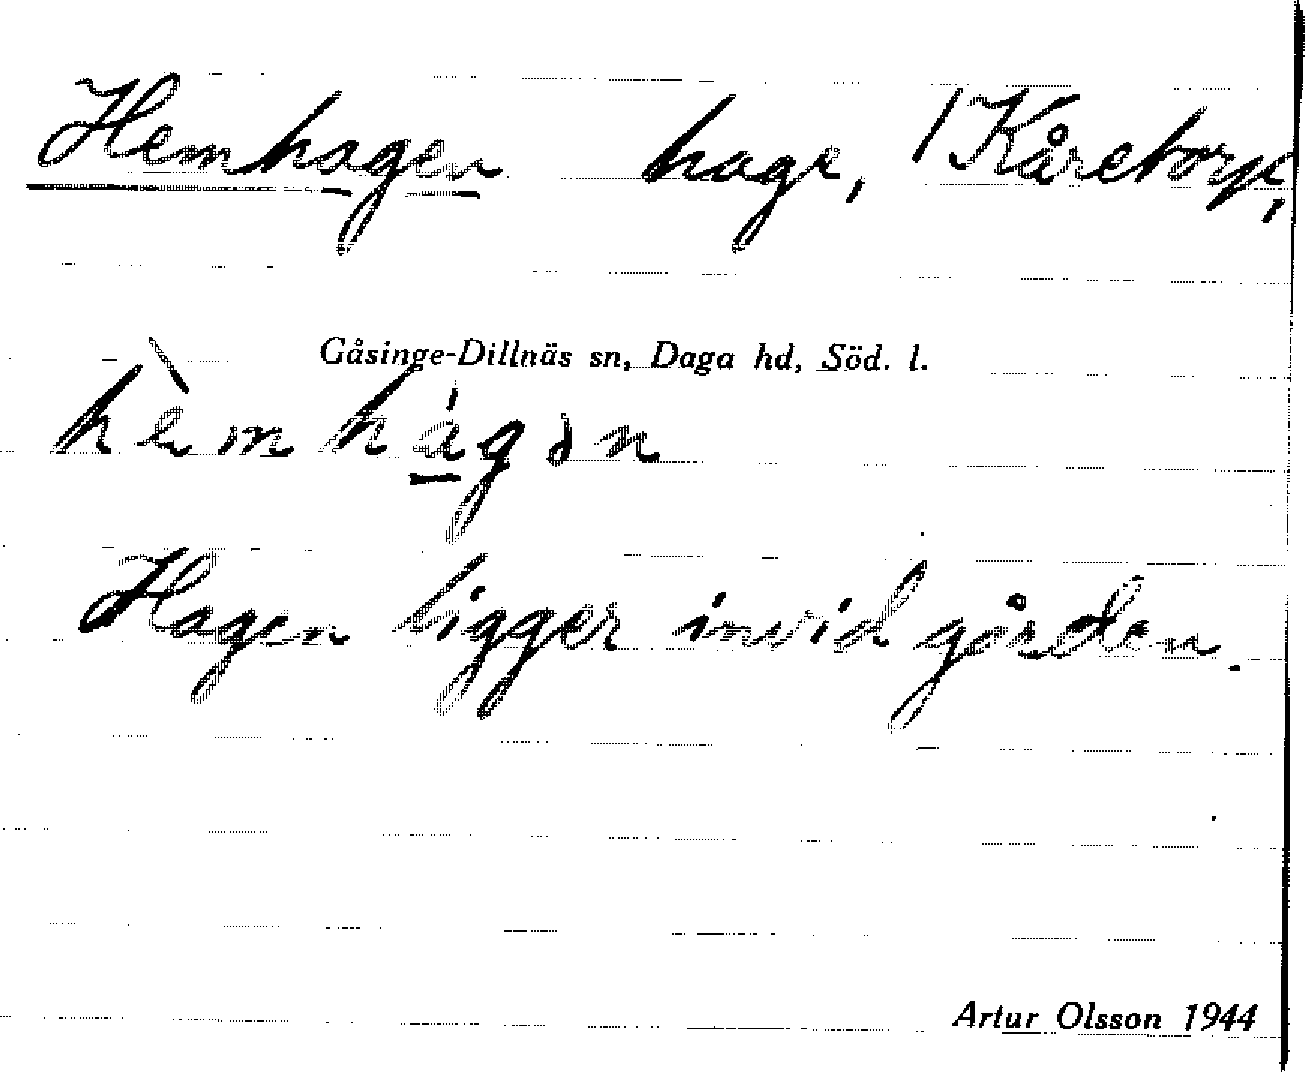 Hemhagen hage, / Kåretorp,
Gåsinge-Dillnäs sn, Daga hd, Söd. l.
hèmhágən
Hagen ligger invid gården.
Artur Olsson 1944